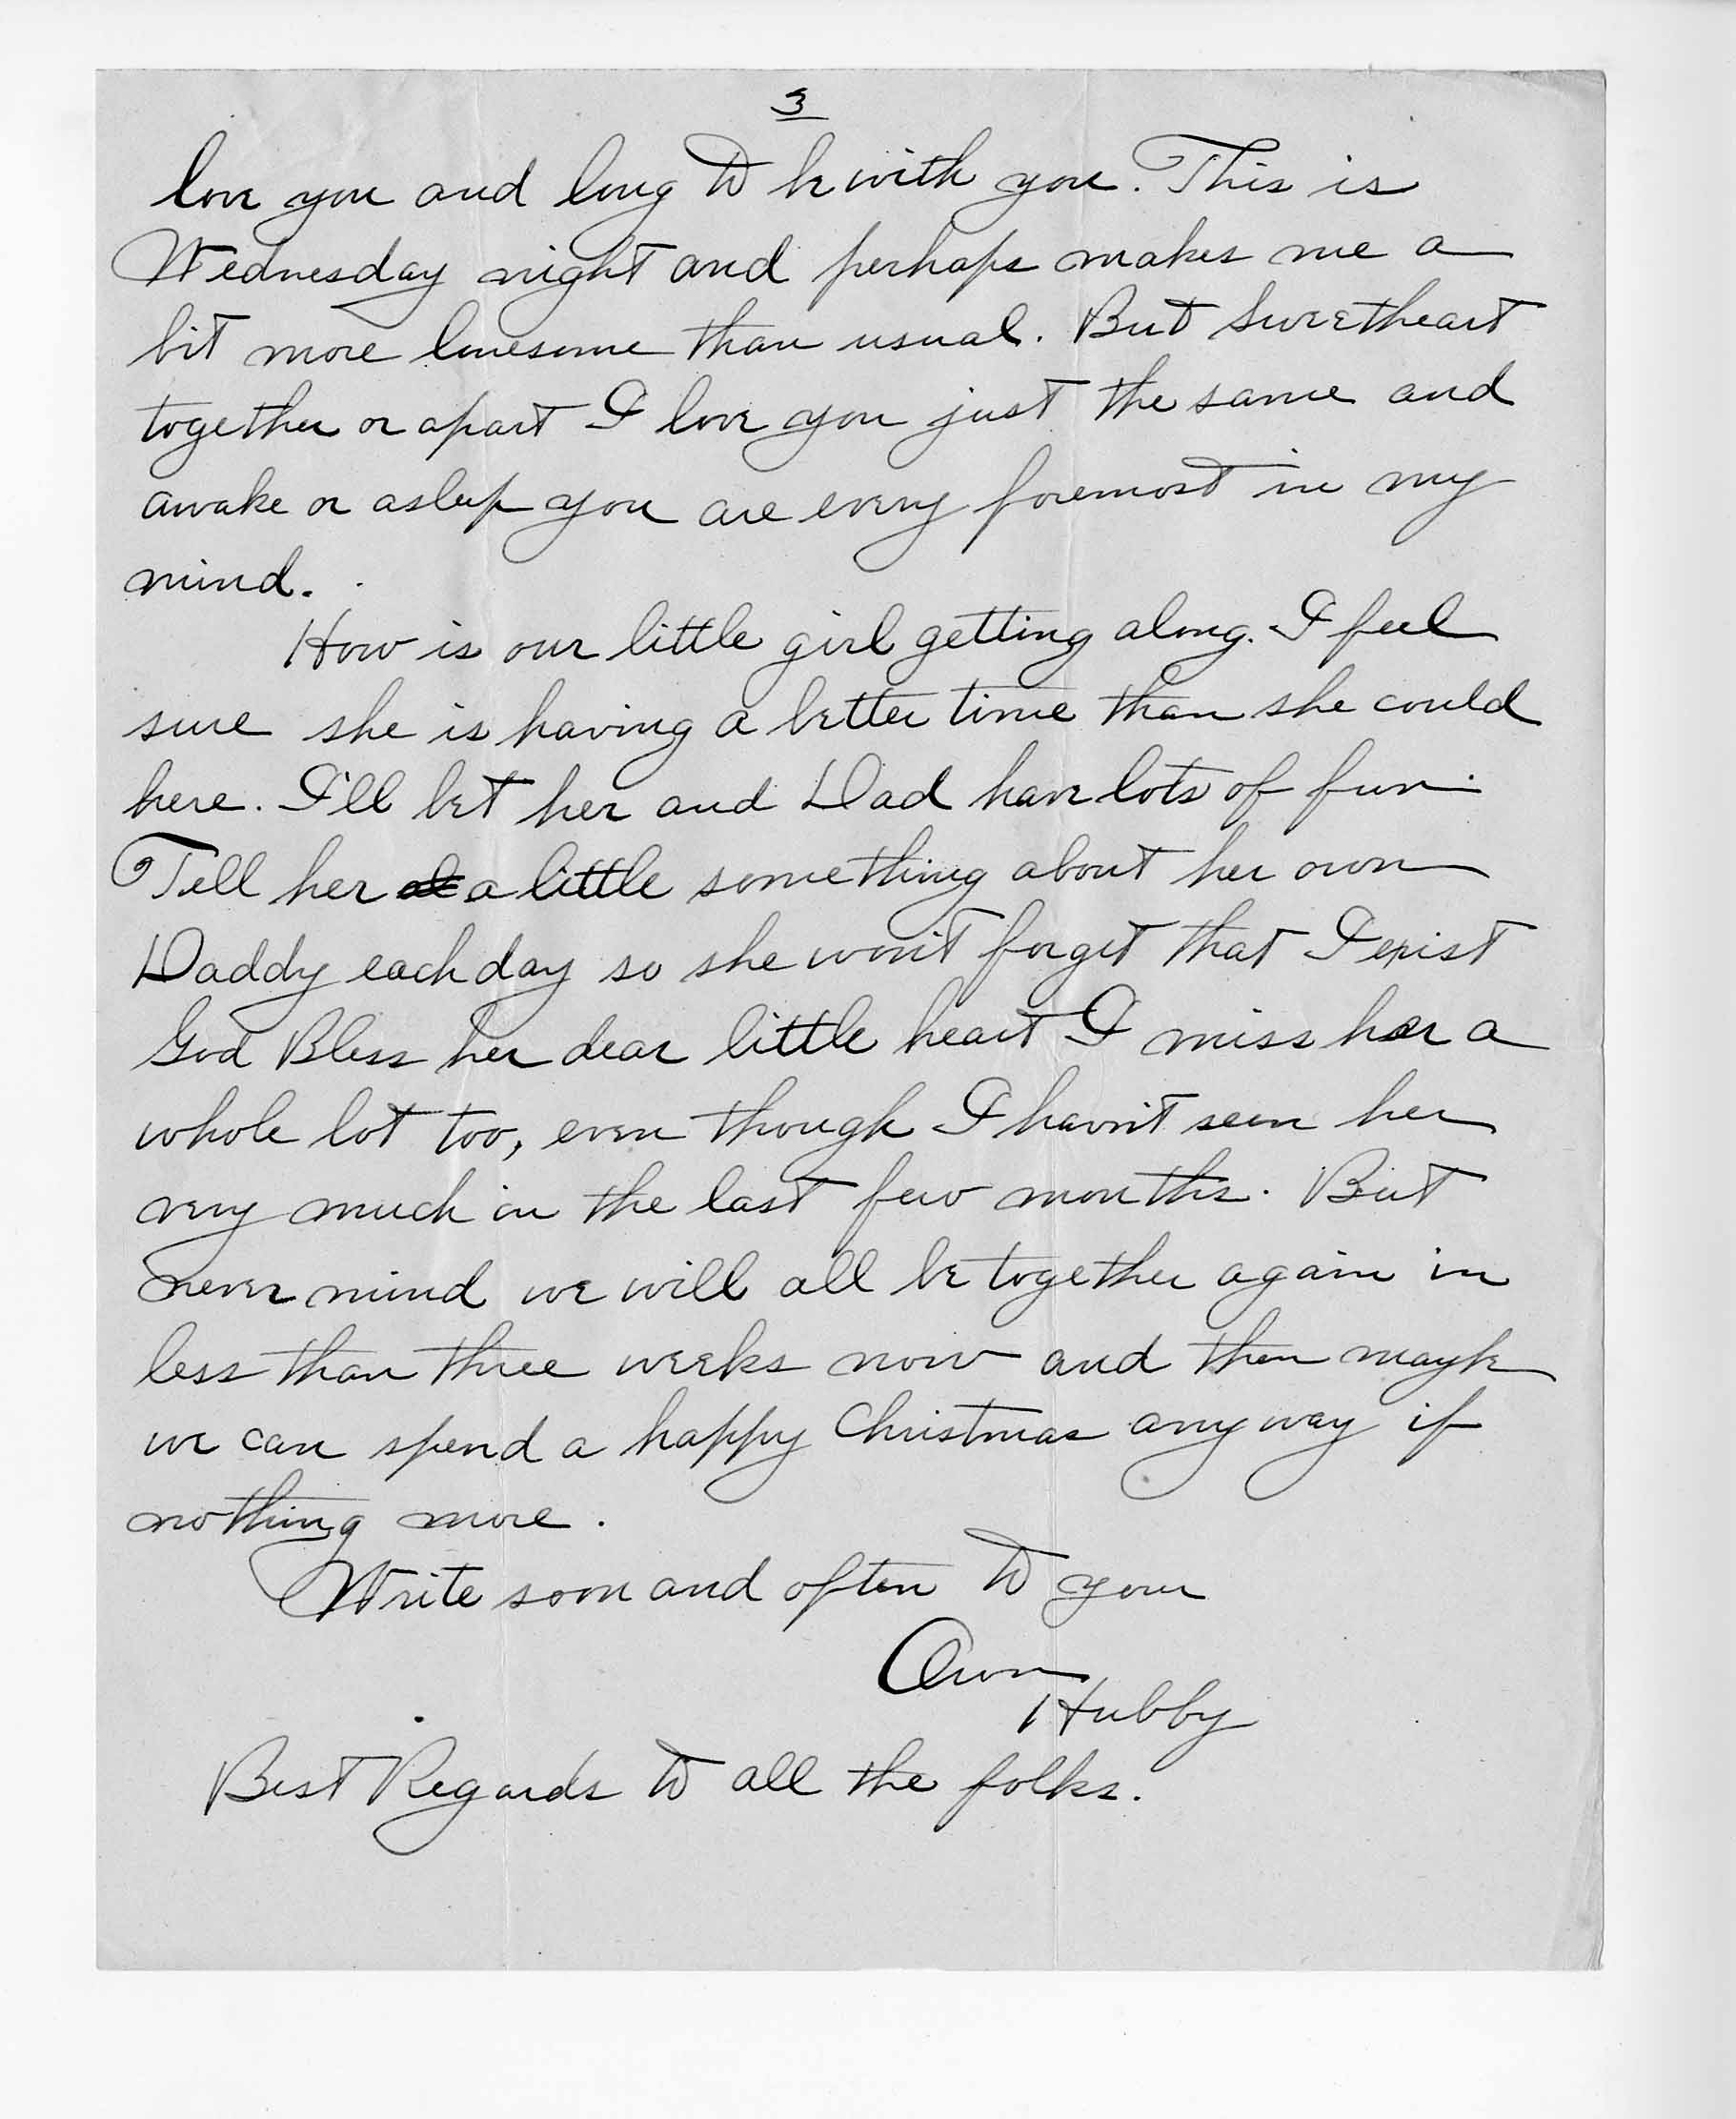 3
love you and long to be with you. This is
Wednesday night and perhaps makes me a
bit more lonesome than usual. But Sweetheart
together or apart I love you just the same and
awake or asleep you are every foremost in my
mind.
How is our little girl getting along. I feel
sure she is having a better time than she could
here. I'll bet her and Dad have lots of fun.
Tell her a little something about her own
Daddy each day so she won't forget that I exist
God Bless her dear little heart I miss her a
whole lot too, even though I havn't seen her
very much in the last few months. But
never mind we will all be together again in
less than three weeks now and then maybe
we can spend a happy Christmas anyway if
nothing more.
Write soon and often to your
Own
Hubby
Best Regards to all the folks.